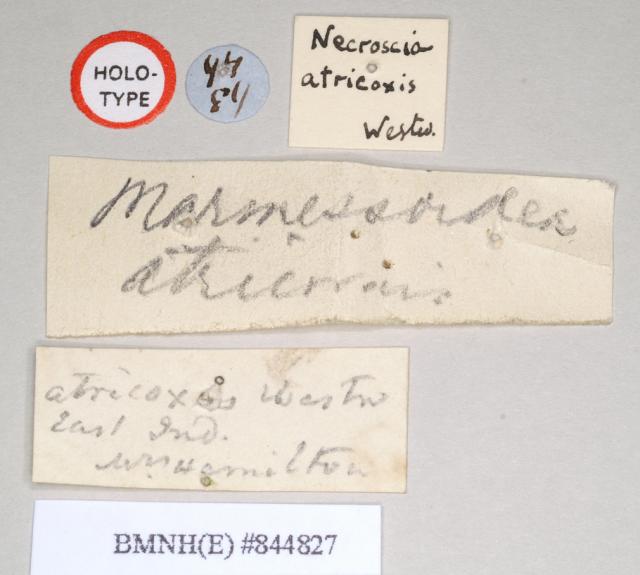 HOLO-
TYPE
44
43
Necroscia
atricoxis
Westw.
Marmessoidea
atricoxis
atricoxis Westw
East Ind.
Wm Hamilton
BMNH(E) #844827